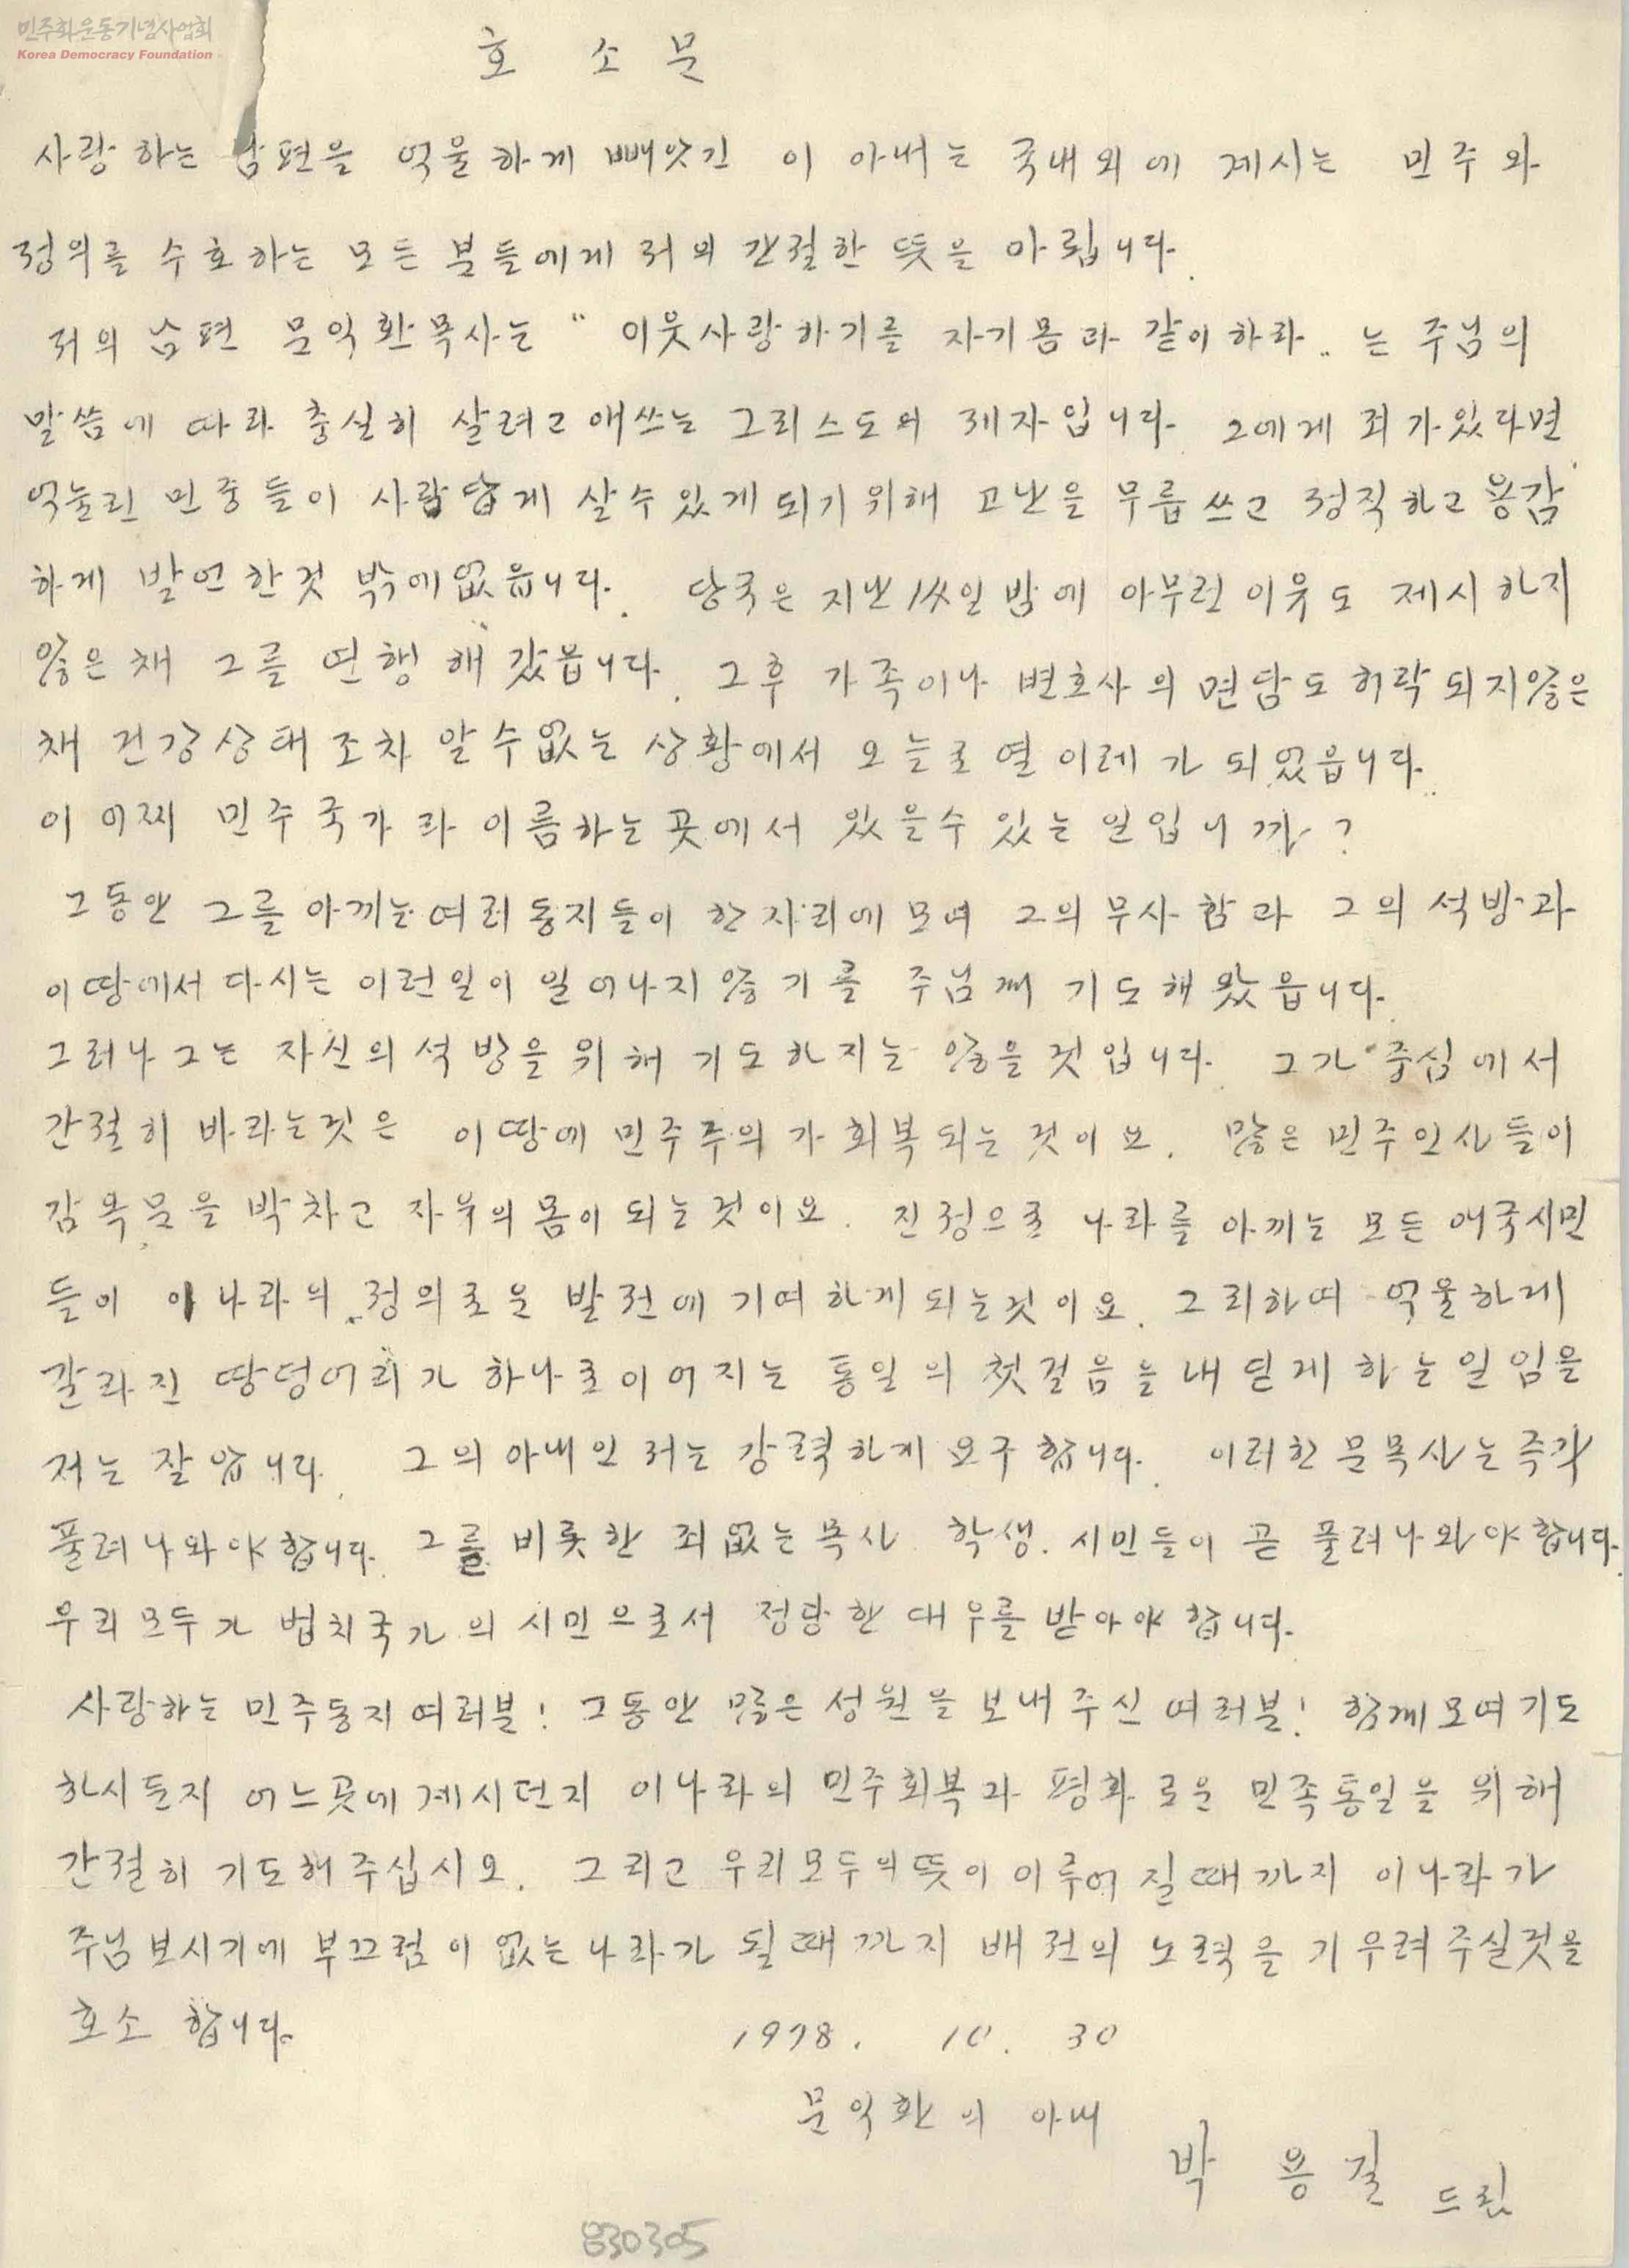 민주화운동기념사업회
Korea Democracy Foundation
호 소 문
사랑하는 남편을 억울하게 빼앗긴 이 아내는 국내외에 계시는 민주와
정의를 수호하는 모든 분들에게 저의 간절한 뜻을 아룁니다.
저의 남편 문익환목사는 " 이웃사랑하기를 자기몸과 같이하라 " 는 주님의
말씀에 따라 충실히 살려고 애쓰는 그리스도의 제자입니다. 그에게 죄가있다면
억눌린 민중들이 사람답게 살수있게되기위해 고난을 무릅쓰고 정직하고 용감
하게 발언한것 밖에없읍니다. 당국은 지난 13일밤에 아무런 이유도 제시하지
않은채 그를 연행해갔읍니다. 그후 가족이나 변호사의 면담도 허락되지않은
채 건강상태조차 알수없는 상황에서 오늘로 열이레가 되었읍니다.
이 어찌 민주국가라 이름하는곳에서 있을수있는 일입니까?
그동안 그를 아끼는 여러동지들이 한자리에 모여 그의 무사함과 그의 석방과
이땅에서 다시는 이런일이 일어나지않기를 주님께 기도해왔읍니다.
그러나 그는 자신의 석방을 위해 기도하지는 않을것입니다. 그가 중심에서
간절히 바라는것은 이땅에 민주주의가 회복되는것이요. 많은 민주인사들이
감옥문을 박차고 자유의 몸이 되는것이요. 진정으로 나라를 아끼는 모든 애국시민
들이 이나라의 정의로운 발전에 기여하게되는것이요. 그리하여 억울하게
갈라진 땅덩어리가 하나로이어지는 통일의 첫걸음을 내딛게하는일임을
저는 잘압니다. 그의아내인 저는 강력하게 요구합니다. 이러한 문목사는 즉각
풀려나와야합니다. 그를 비롯한 죄없는 목사. 학생. 시민들이 곧 풀려나와야합니다.
우리모두가 법치국가의 시민으로서 정당한 대우를 받아야합니다.
사랑하는 민주동지여러분! 그동안 많은 성원을 보내주신 여러분! 함께모여기도
하시든지 어느곳에계시던지 이나라의 민주회복과 평화로운 민족통일을 위해
간절히 기도해주십시오. 그리고 우리모두의뜻이 이루어질때까지 이나라가
주님보시기에 부끄럼이없는나라가 될때까지 배전의 노력을 기우려주실것을
호소합니다.
1978. 10. 30
문익환의 아내
박 용 길 드림
830305